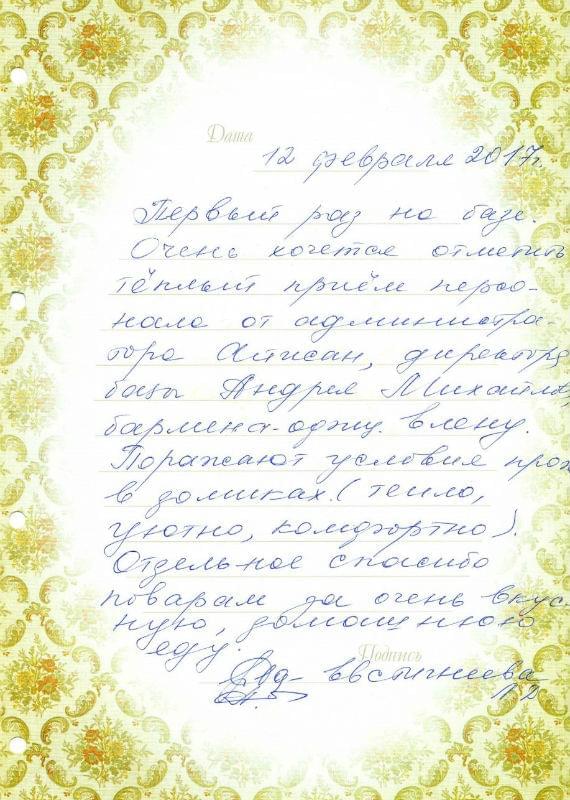 Дата
12 февраля 2017г.
Первый раз на базе.
Очень хочется отметить
тёплый приём персо-
нала от администра-
тора Айисан, директора
базы Андрея Михайлов
бармена-
Поражают условия прож
в домиках. (тепло,
уютно, комфортно).
Отдельное спасибо
поварам за очень вкус-
ную, домашнюю
еду.
Подпись
Евстигнеева
Л.Д